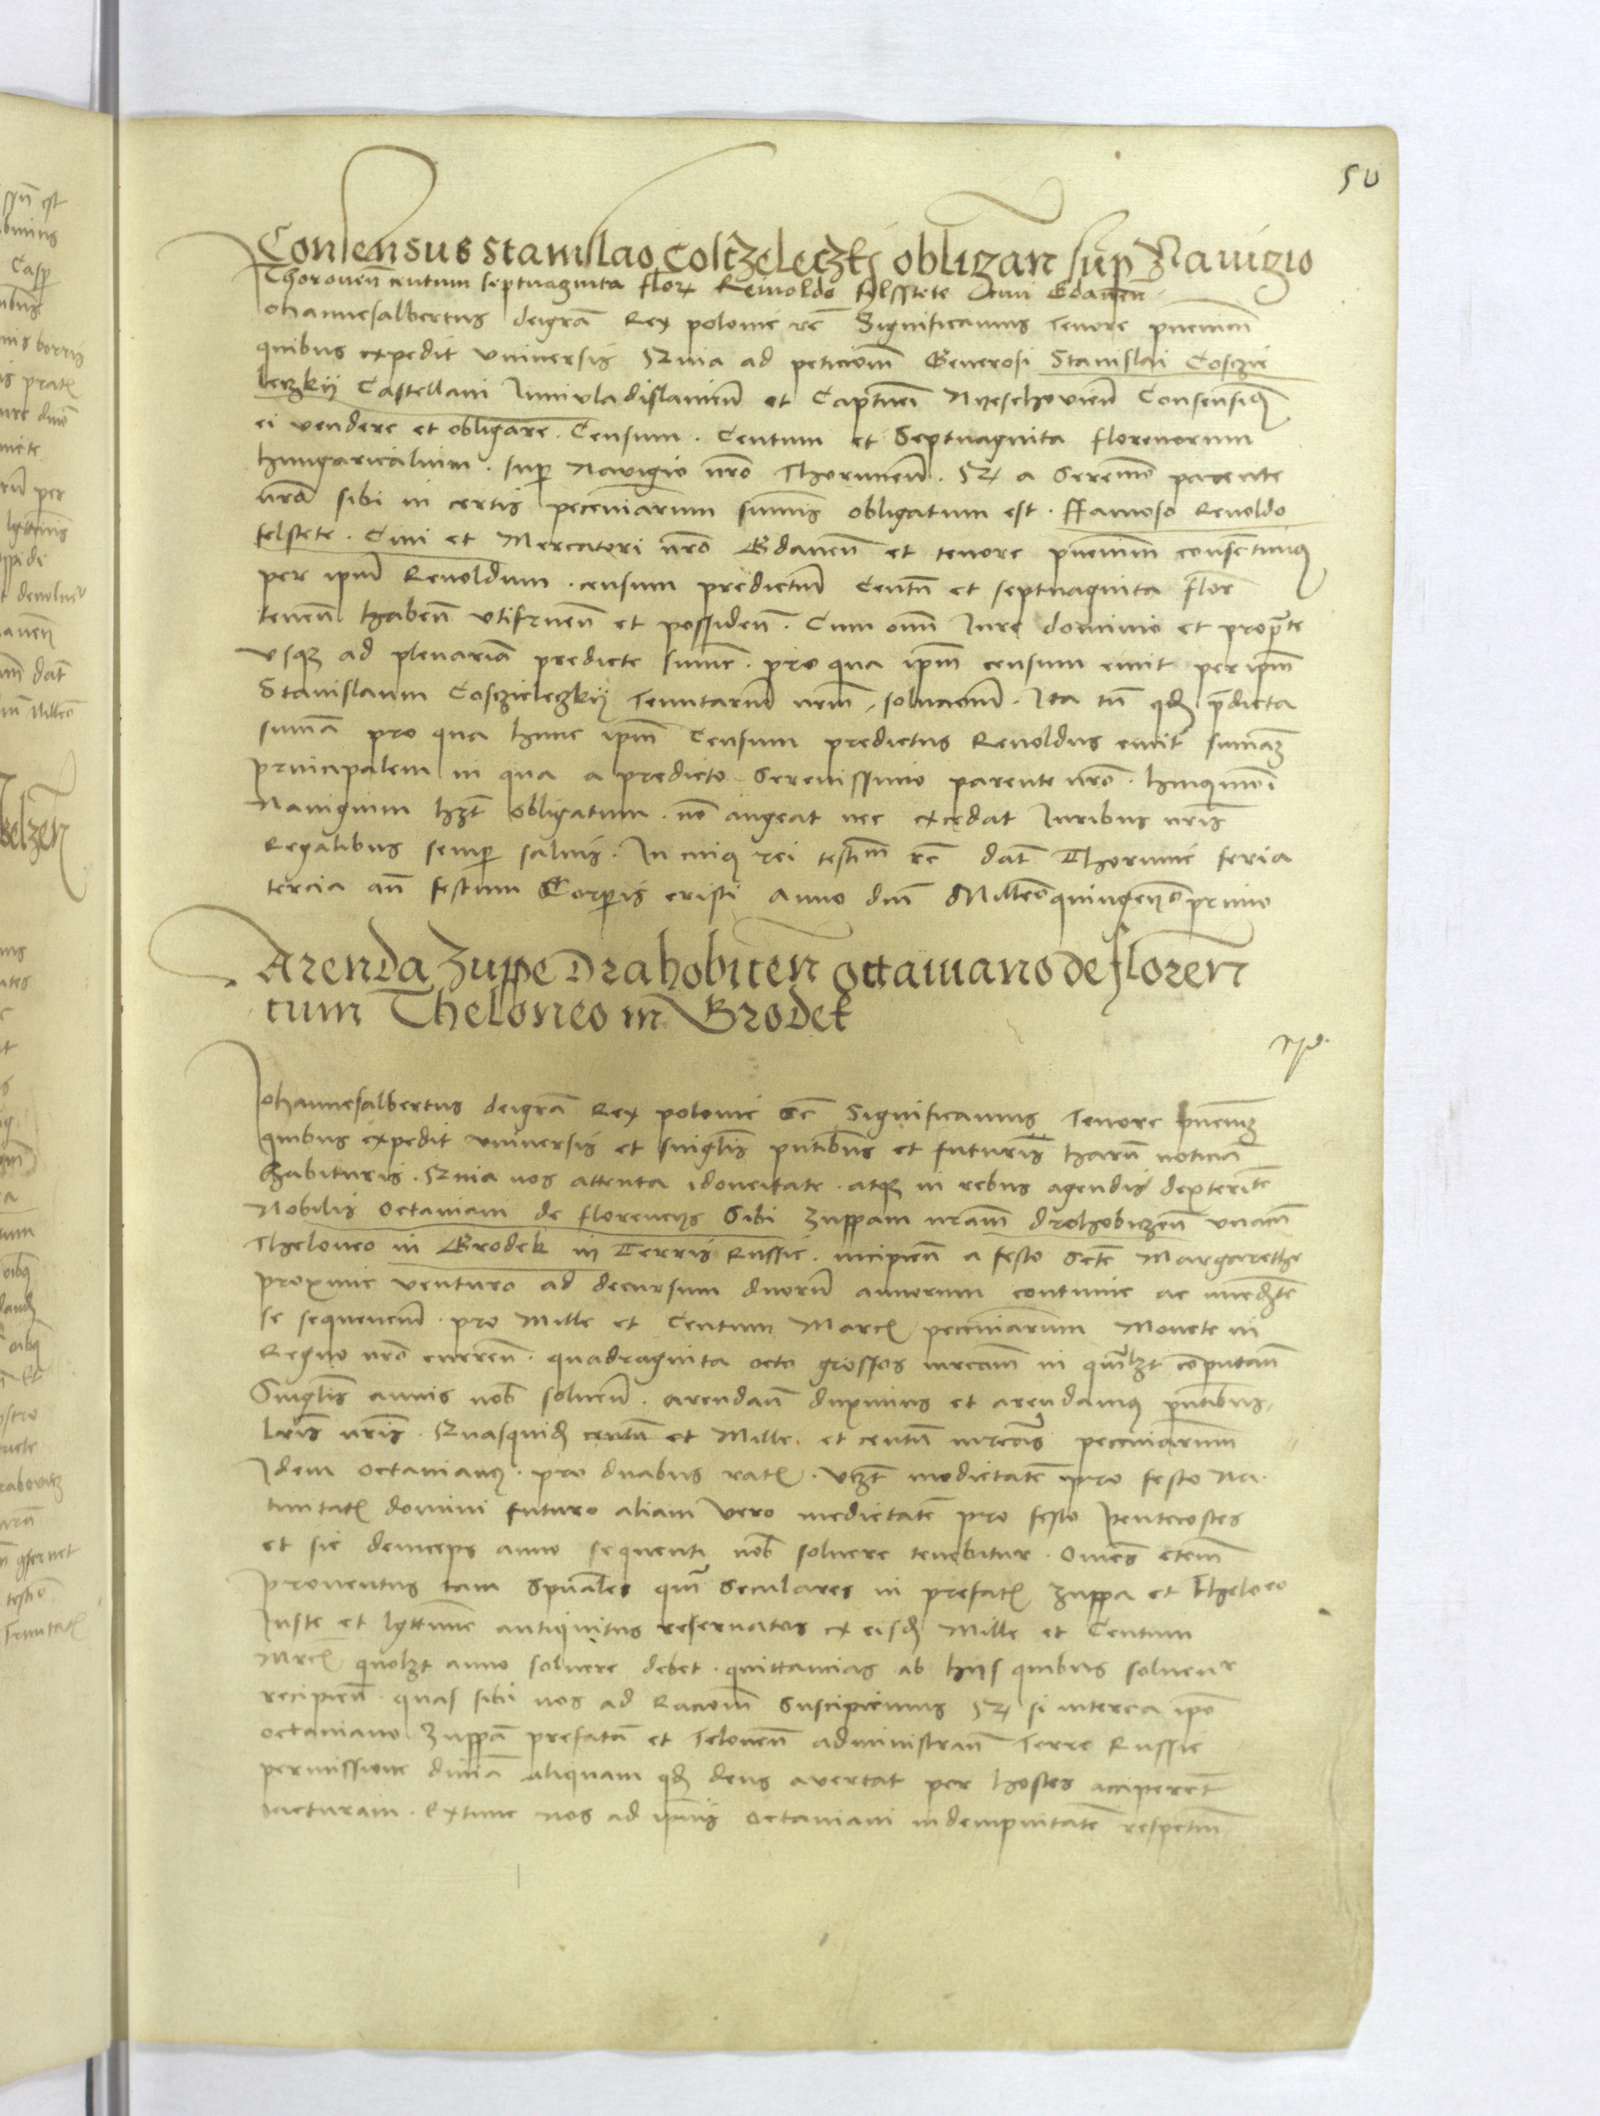 50
Consensus Stanislao Coscʒeleczki obligan̄ sup Navigio
Thorouen̄ centum septuaginta flor Reinoldo felsstete Ciui Gdanen̄
Johannesalbertus deigrā Rex polonie rc̄ Significamus Tenore pn̄cium
quibus expedit vniversis Quia ad peticiom̄ Generosi Stanislai Cosczie
leczkij Castellani Iuniuladislauien̄ et Captūei Nyeschouien̄ Consensiq
ei vendere et obligare . Censum . Centum et Septuaginta florenorum
hungaricalium . sup Nauigio nr̄o Thorunen̄ . Qd a Seremo parente
nr̄o sibi in certis peccuniarum sum̄is obligatum est . ffamoso Renoldo
felstete . Ciui et Mercatori nr̄o Gdanen̄ et tenore pn̄cium consentimq
per ipm̄ Renoldum . censum predictum Centū et septuaginta flor
tenen̄ haben̄ vtifruen̄ et possiden̄ . Cum omn̄ Iure dominio et proprāte
vsqz ad plenariā predicte sum̄e . pro qua ipm̄ censum emit per ipm̄
Stanislaum Cosczieleczkij Tenutarium nr̄m . soluciom̄ . Ita tn̄ qd p̄dicta
sum̄a pro qua hunc ipm̄ Censum predictus Renoldus emit sum̄az
principalem in qua a predicto Serenissimo parente nr̄o . huiusmōi
Nauigium hʒt obligatum . nō augeat nec excedat Iuribus nr̄is
Regalibus semp saluis . In cuiq rei testim̄ rc̄ dat̄ Thorunie feria
tercia an̄ festum Corpis cristi Anno dni Milleo quingen° primo
Arenda Zuppe Drahobicen̄ Octaviano de floren̄
cum Theloneo in Grodek
Johannesalbertus deigrā Rex polonie rc̄ Significamus Tenore pn̄ciuz
quibus expedit vniversis et singlis pn̄tibus et futuris harū noticiā
habituris . Quia nos attenta idoneitate . atqz in rebus agendis dexteritē
Nobilis Octaviani de florencijs Sibi Zuppam nr̄am drohobiczen̄ vnacū
Theloneo in Grodek in Terris Russie . incipien̄ a festo Scte Margarethe
proxime venturo ad decursum duorū annorum continue ac immedʒte
se sequenciū . pro Mille et Centum Marcꝭ peccuniarum Monete in
Regno nr̄o curren̄ . quadraginta octo grossos mrcam̄ in qm̄lʒt computan̄
Singlis annis nob soluen̄ . arendan̄ duximus et arendamꝰ pn̄tibus
lr̄is nr̄is . Quasquid centū et Mille et centū mrcas peccuniarum
Idem Octavianꝰ . pro duabus ratꝭ . vʒt medietatē pro festo Na
tiuitatꝭ domini futuro aliam vero medietatē pro festo Pentecostes
et sic deinceps anno sequenti nob soluere tenebitur . Omnes etem̄
Prouentus tam spn̄ales qm̄ Seculares in prefatꝭ Zuppa et Theloneo
Iuste et lyttime antiquitus reseruatos ex eisd Mille et Centum
Mrcꝭ quolʒt anno soluere debet . quittancias ab hijs quibus soluen̄r
recipien̄ . quas sibi nos ad Raciom̄ Suscipiemus Qd si interea ipo
Octaviano Zuppā prefatā et Teloneū administran̄ Terre Russie
permissione diuīa aliquam qd deus avertat per hostes acciperet
iacturam . Extunc nos ad ipius Octaviani indempnitatē respectū